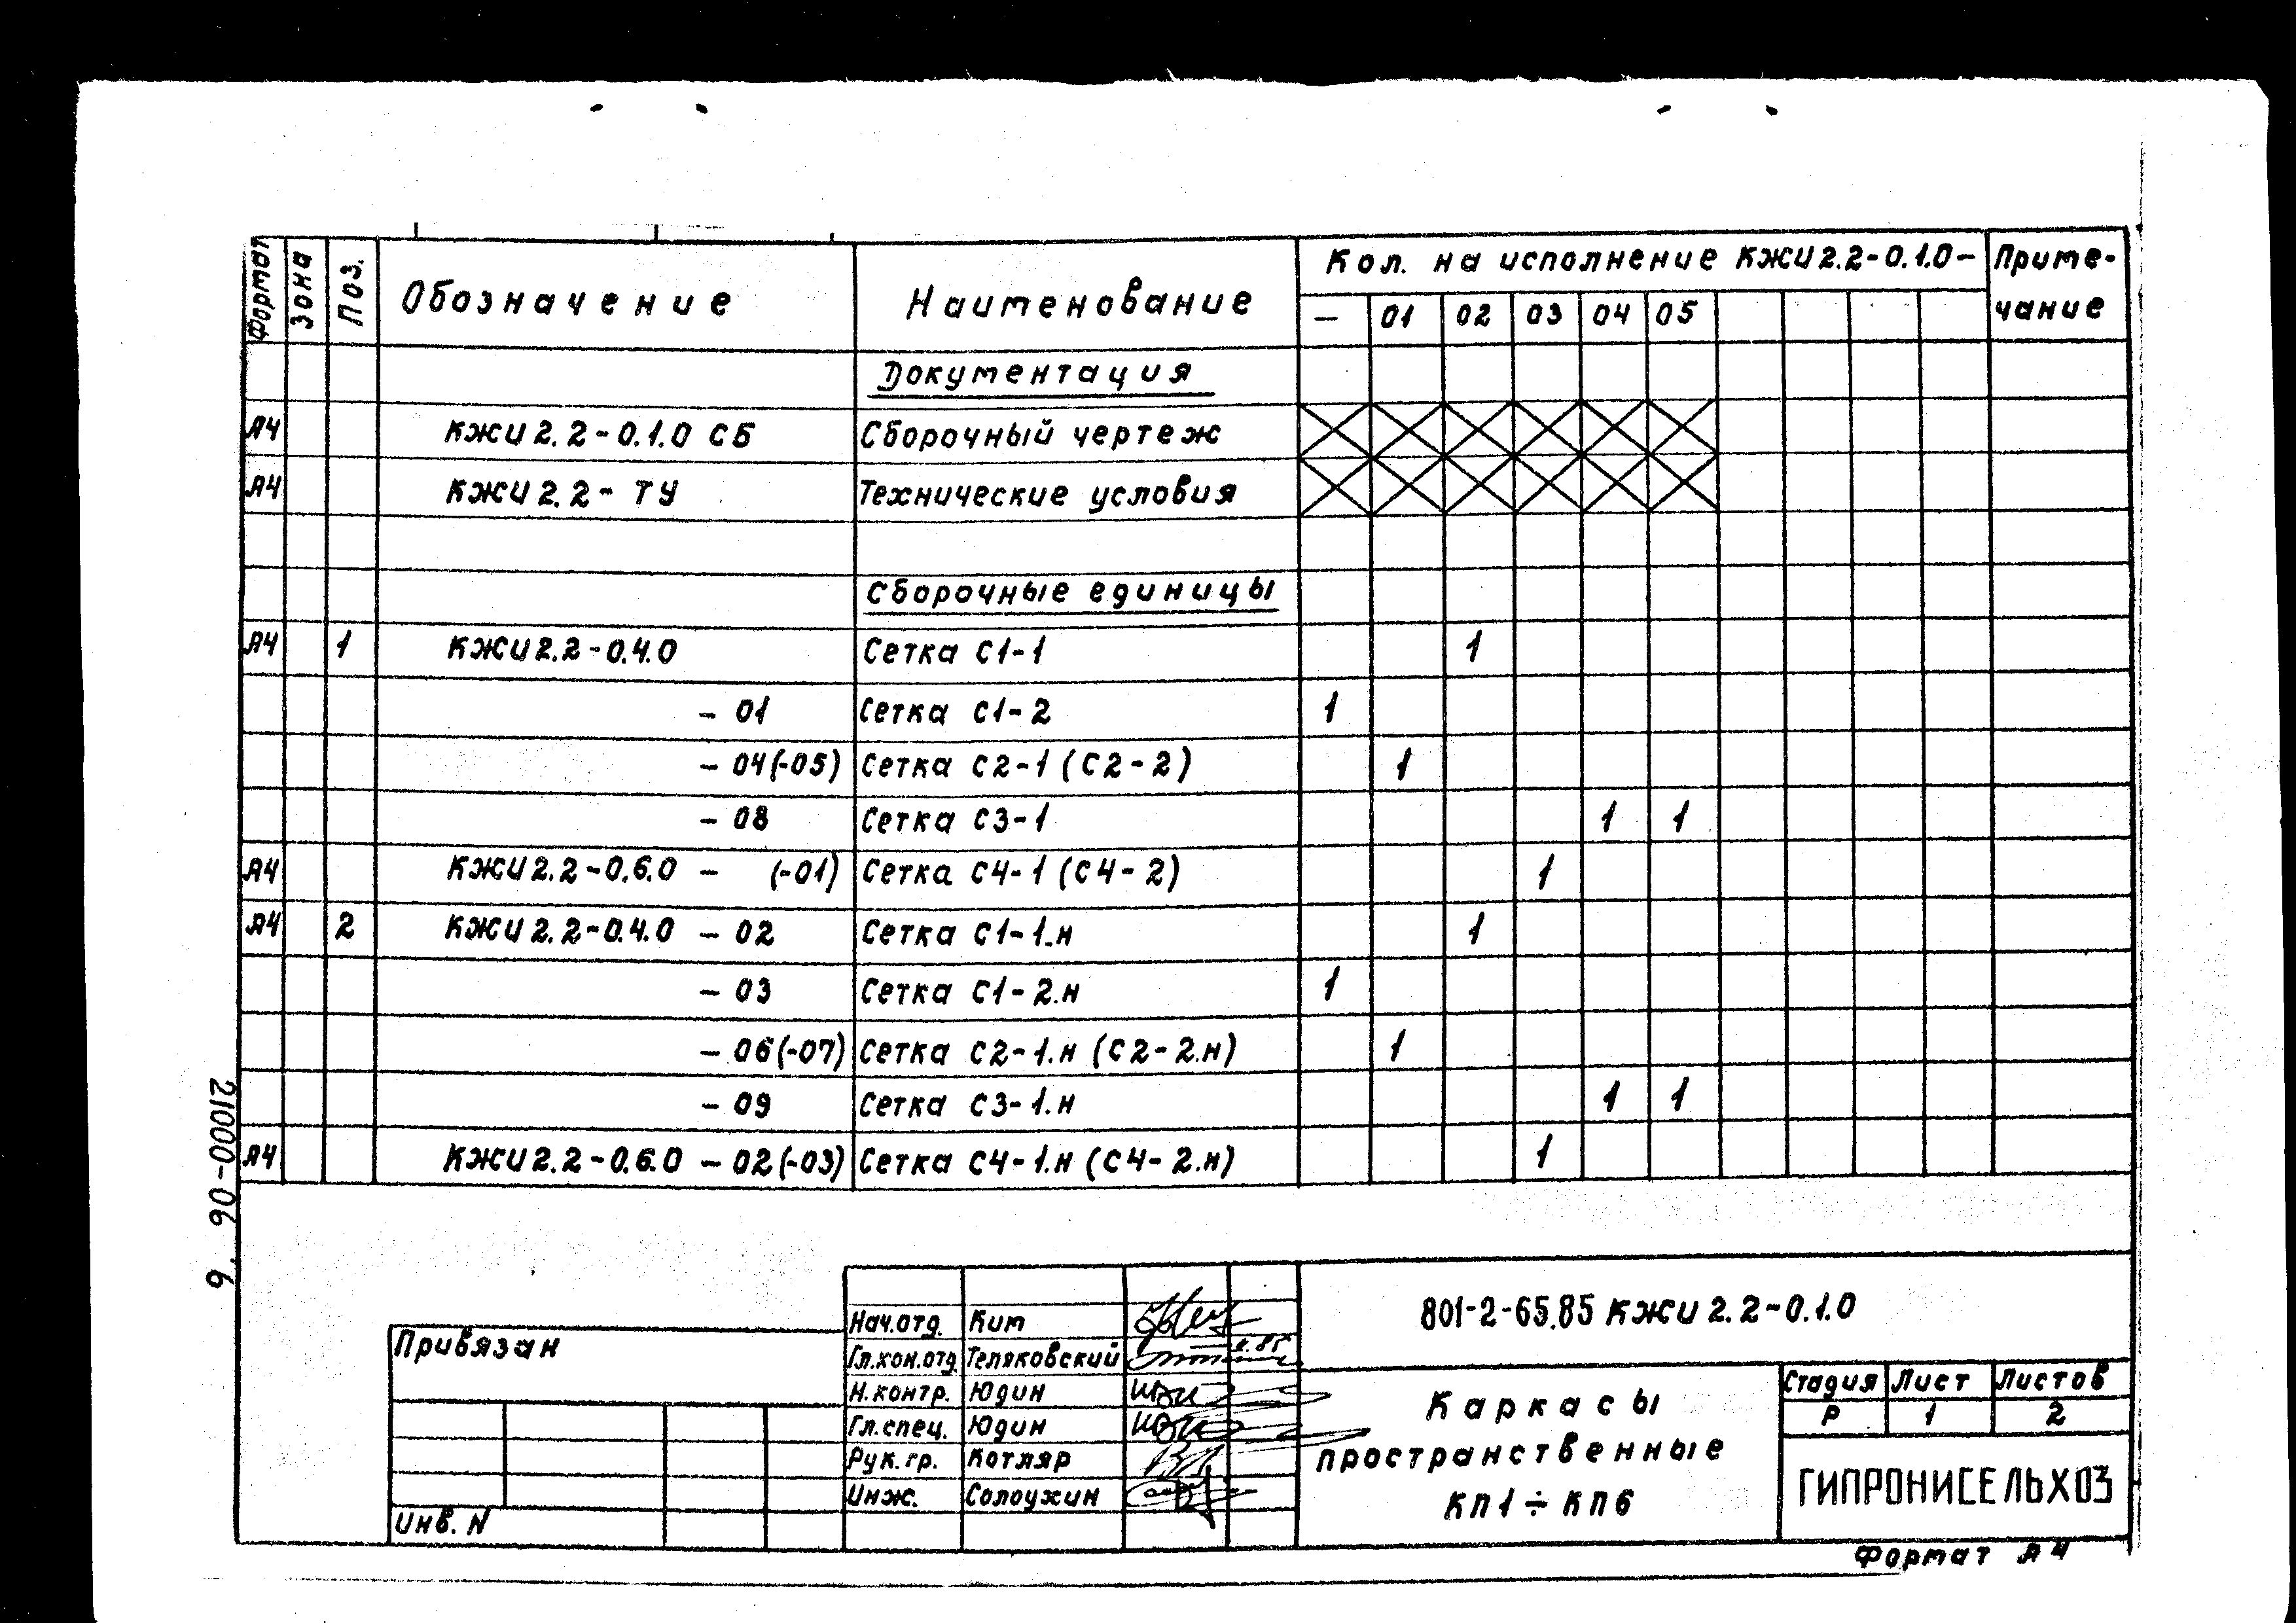 Формат Зона Поз. Обозначение Наименование Кол. на исполнение КЖИ2.2-0.1.0- Приме-
чание
— 01 02 03 04 05
Документация
А4 КЖИ2.2-0.1.0 СБ Сборочный чертеж
А4 КЖИ2.2- ТУ Технические условия
Сборочные единицы
А4 1 КЖИ2.2-0.4.0 Сетка С1-1 1
- 01 Сетка С1-2 1
- 04(-05) Сетка С2-1 (С2-2) 1
- 08 Сетка С3-1 1 1
А4 КЖИ2.2-0.6.0 - (-01) Сетка С4-1 (С4-2) 1
А4 2 КЖИ2.2-0.4.0 - 02 Сетка С1-1.н 1
- 03 Сетка С1-2.н 1
- 06(-07) Сетка С2-1.н (С2-2.н) 1
- 09 Сетка С3-1.н 1 1
А4 КЖИ2.2-0.6.0 - 02(-03) Сетка С4-1.н (С4-2.н) 1
21000-06 6
Привязан
Инв. N
Нач.отд. Ким
Гл.кон.отд Теляковский
Н.контр. Юдин
Гл.спец. Юдин
Рук.гр. Котляр
Инж. Солоухин
801-2-65.85 КЖИ2.2-0.1.0
Каркасы
пространственные
КП1÷КП6
Стадия Лист Листов
Р 1 2
ГИПРОНИСЕЛЬХОЗ
Формат А4